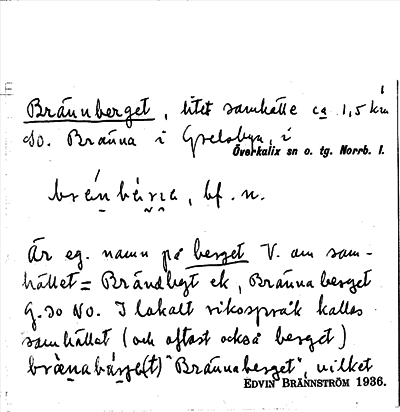 Brännberget, litet samhälle ca 1,5 km
SO. Bränna i Grelsbyn, i
Överkalix sn o. tg. Norrb. l.
bf. n.
Är eg. namn på berget V. om sam-
hället = Brändbgt ek, Bränna berget
G. SO NO. I lokalt riksspråk kallas
samhället (och oftast också berget)
"Brännaberget", vilket
EDVIN BRÄNNSTRÖM 1936.